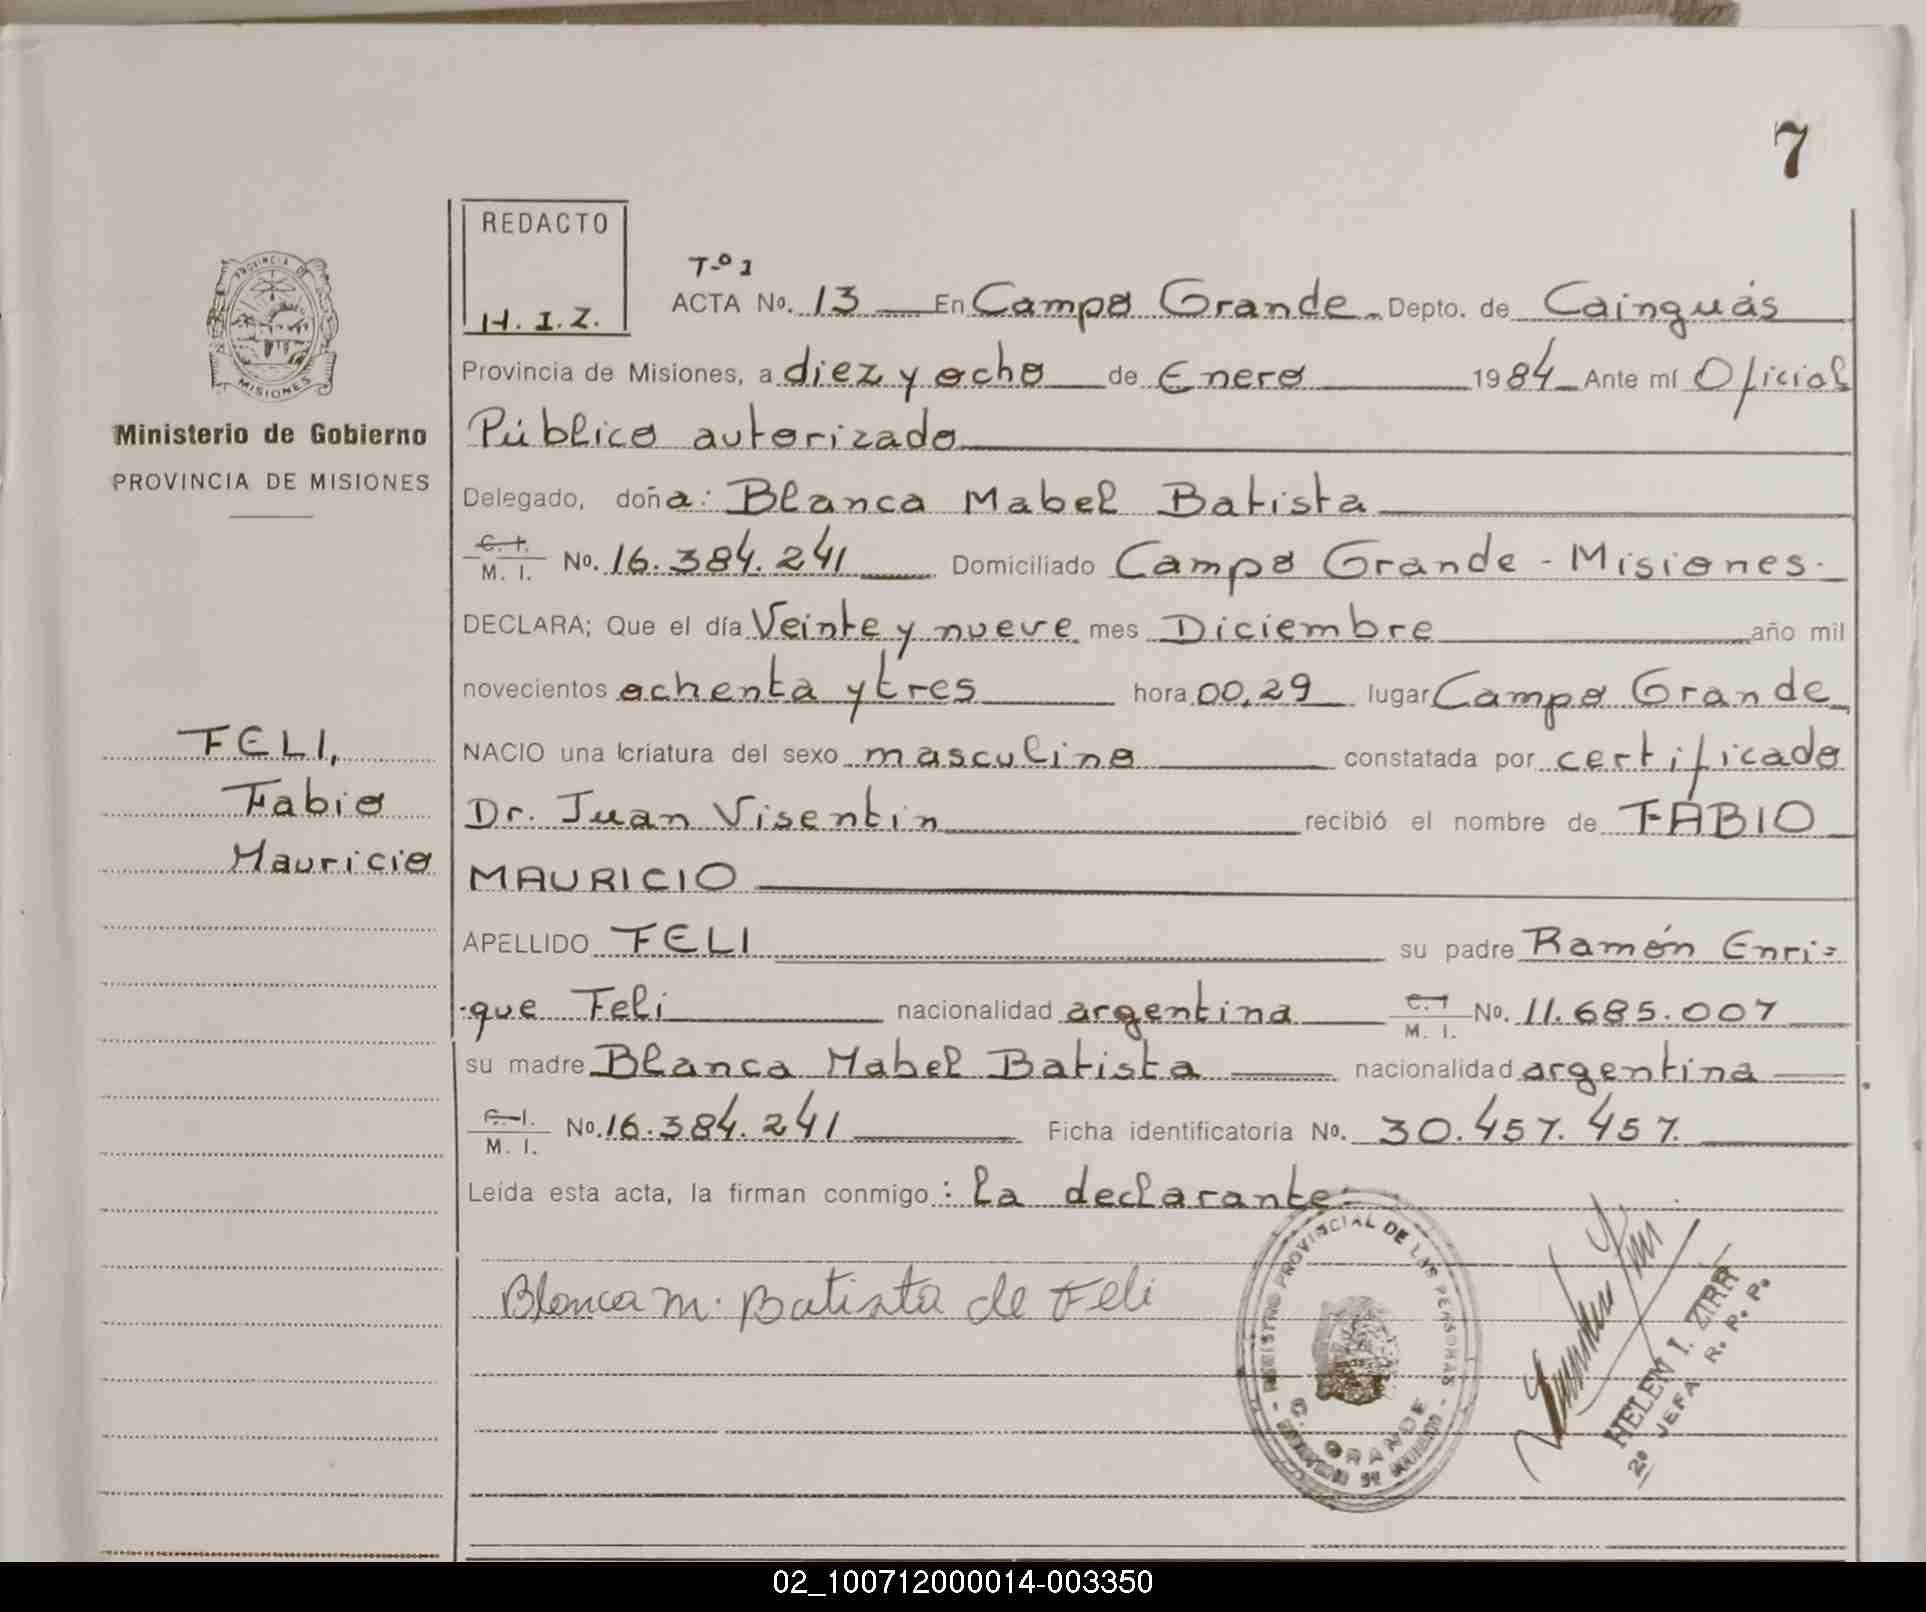 7
REDACTO
H. I. Z.
Tº 1
ACTA No. 13 En Campo Grande. Depto. de Cainguás
Provincia de Misiones, a diez y ocho de Enero 1984 Ante mí Oficial
Público autorizado
Delegado, doña: Blanca Mabel Batista
C. I.
M. I. No. 16.384.241 Domiciliado Campo Grande - Misiones.
DECLARA; Que el día Veinte y nueve mes Diciembre año mil
novecientos ochenta y tres hora 00,29 lugar Campo Grande
NACIO una criatura del sexo masculino constatada por certificado
Dr. Juan Visentin recibió el nombre de FABIO
MAURICIO
APELLIDO FELI su padre Ramón Enri=
que Feli nacionalidad argentina C. I
M. I. No. 11.685.007
su madre Blanca Mabel Batista nacionalidad argentina
C. I.
M. I. No. 16.384.241 Ficha identificatoria No. 30.457.457.
Leída esta acta, la firman conmigo: la declarante:
Blanca M. Batista de Feli
PROVINCIA DE
MISIONES
Ministerio de Gobierno
PROVINCIA DE MISIONES
FELI,
Fabio
Mauricio
REGISTRO PROVINCIAL DE LAS PERSONAS
C. GRANDE
HELEN I. ZIRR
2º JEFA R. P. P.
02_100712000014-003350